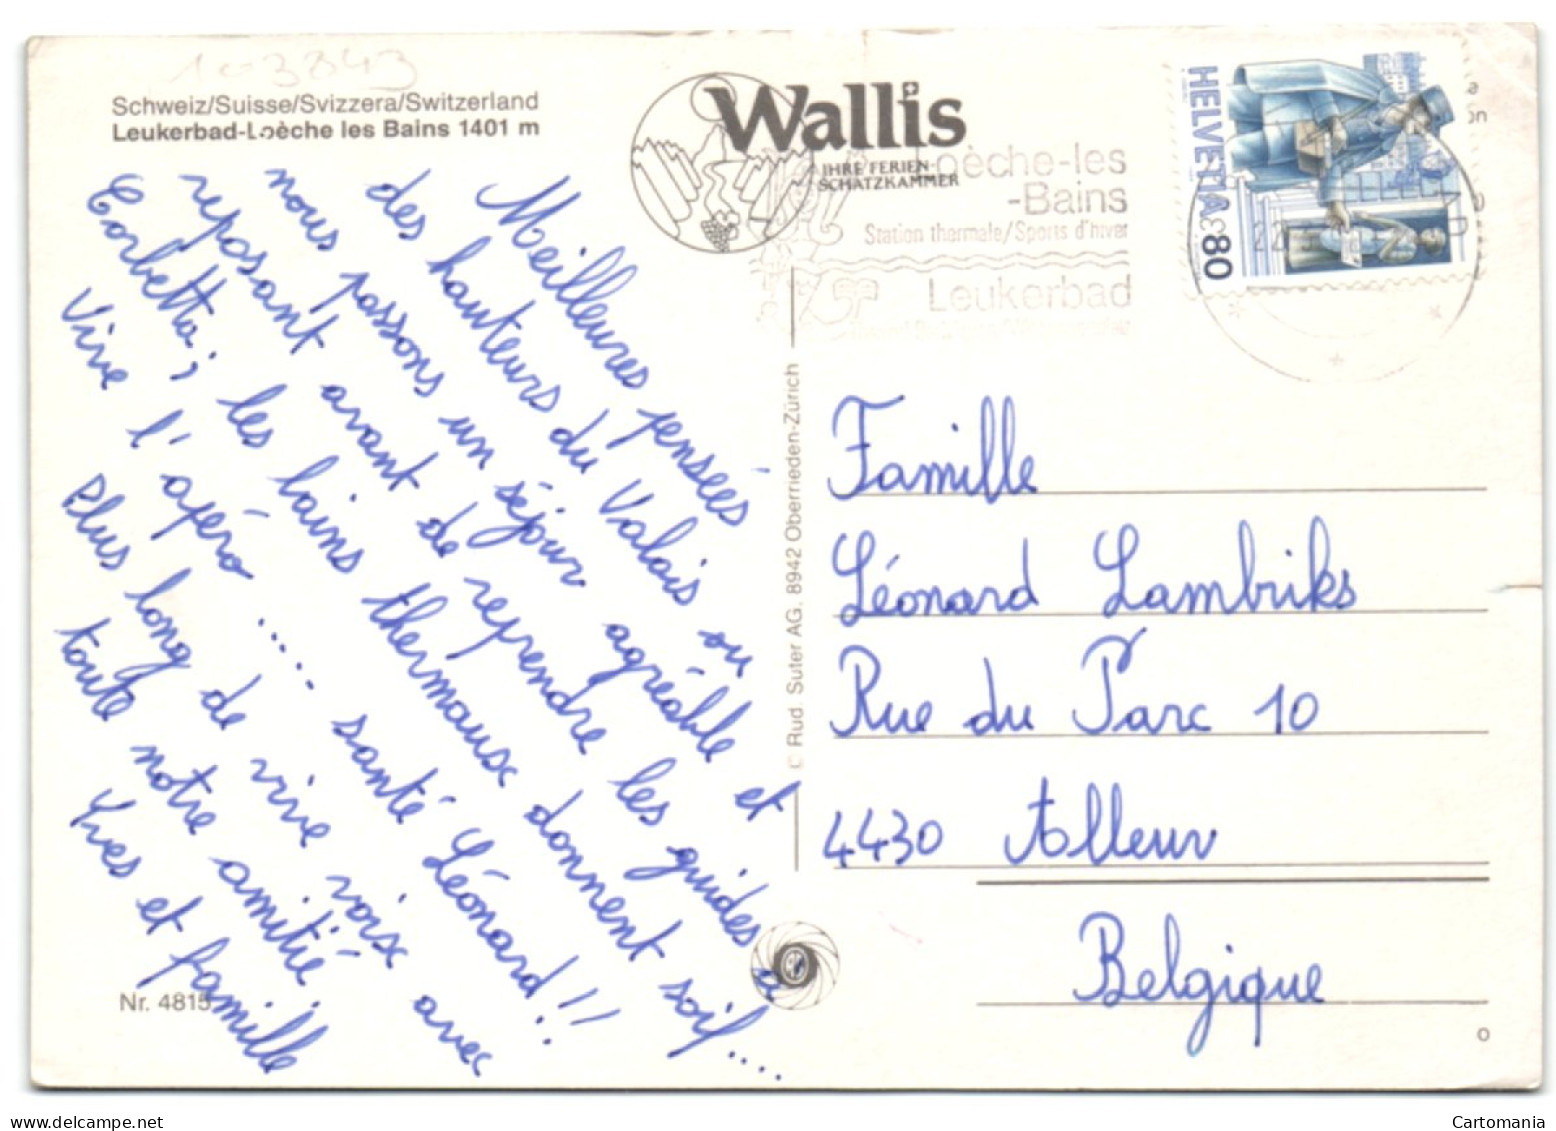 103843
Schweiz/Suisse/Svizzera/Switzerland
Leukerbad-Loèche les Bains 1401 m
Meilleures pensées
des hauteurs du Valais ou
nous passons un séjour agréable et
reposant avant de reprendre les guides à
Corbetta ; les bains thermaux donnent soif....
Vive l'apéro ..... santé Léonard !!
Plus long de vive voix avec
toute notre amitié.
Yves et famille
Nr. 4815
Wallis
IHRE FERIEN-
SCHATZKAMMER
Loèche-les
-Bains
Station thermale/Sports d'hiver
Leukerbad
HELVETIA
80
© Rud. Suter AG. 8942 Oberrieden-Zürich
Famille
Léonard Lambriks
Rue du Parc 10
4430 Alleur
Belgique
www.delcampe.net
Cartomania